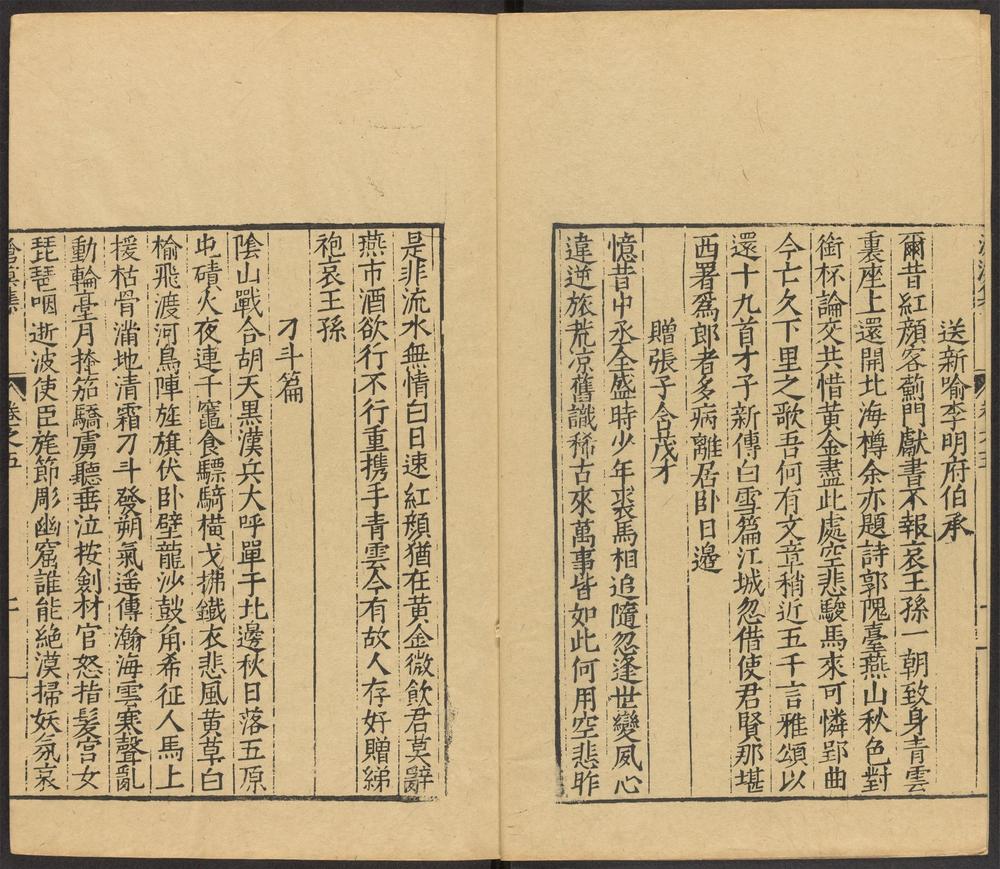 送新喻李明府伯承
爾昔紅顔客薊門獻書不報哀王孫一朝致身青雲
裏座上還開北海樽余亦題詩郭隗臺燕山秋色對
銜杯論交共惜黄金盡此處空悲駿馬來可憐郢曲
今亡久下里之歌吾何有文章稍近五千言雅頌以
還十九首才子新傳白雪篇江城忽借使君賢那堪
西署爲郎者多病離居卧日邉
贈張子含茂才
憶昔中丞全盛時少年裘馬相追隨忽逢世變夙心
違逆旅荒凉舊識稀古來萬事皆如此何用空悲昨
是非流水無情白日速紅顔猶在黄金微飲君莫辭
燕市酒欲行不行重携手青雲今有故人存好贈綈
袍哀王孫
刁斗篇
陰山戰合胡天黒漢兵大呼單于北邊秋日落五原
屯磧火夜連千竈食驃騎橫戈拂鐵衣悲風黄草白
榆飛渡河鳥陣旌旗伏卧壁龍沙鼓角希征人馬上
援枯骨滿地清霜刁斗發朔氣遥傳瀚海雲寒聲亂
動輪臺月捲笳驕虜聽垂泣按劍材官怒指髮宫女
琵琶咽逝波使臣旄節彫幽窟誰能絶漠掃妖氛哀
滄溟集
卷之五